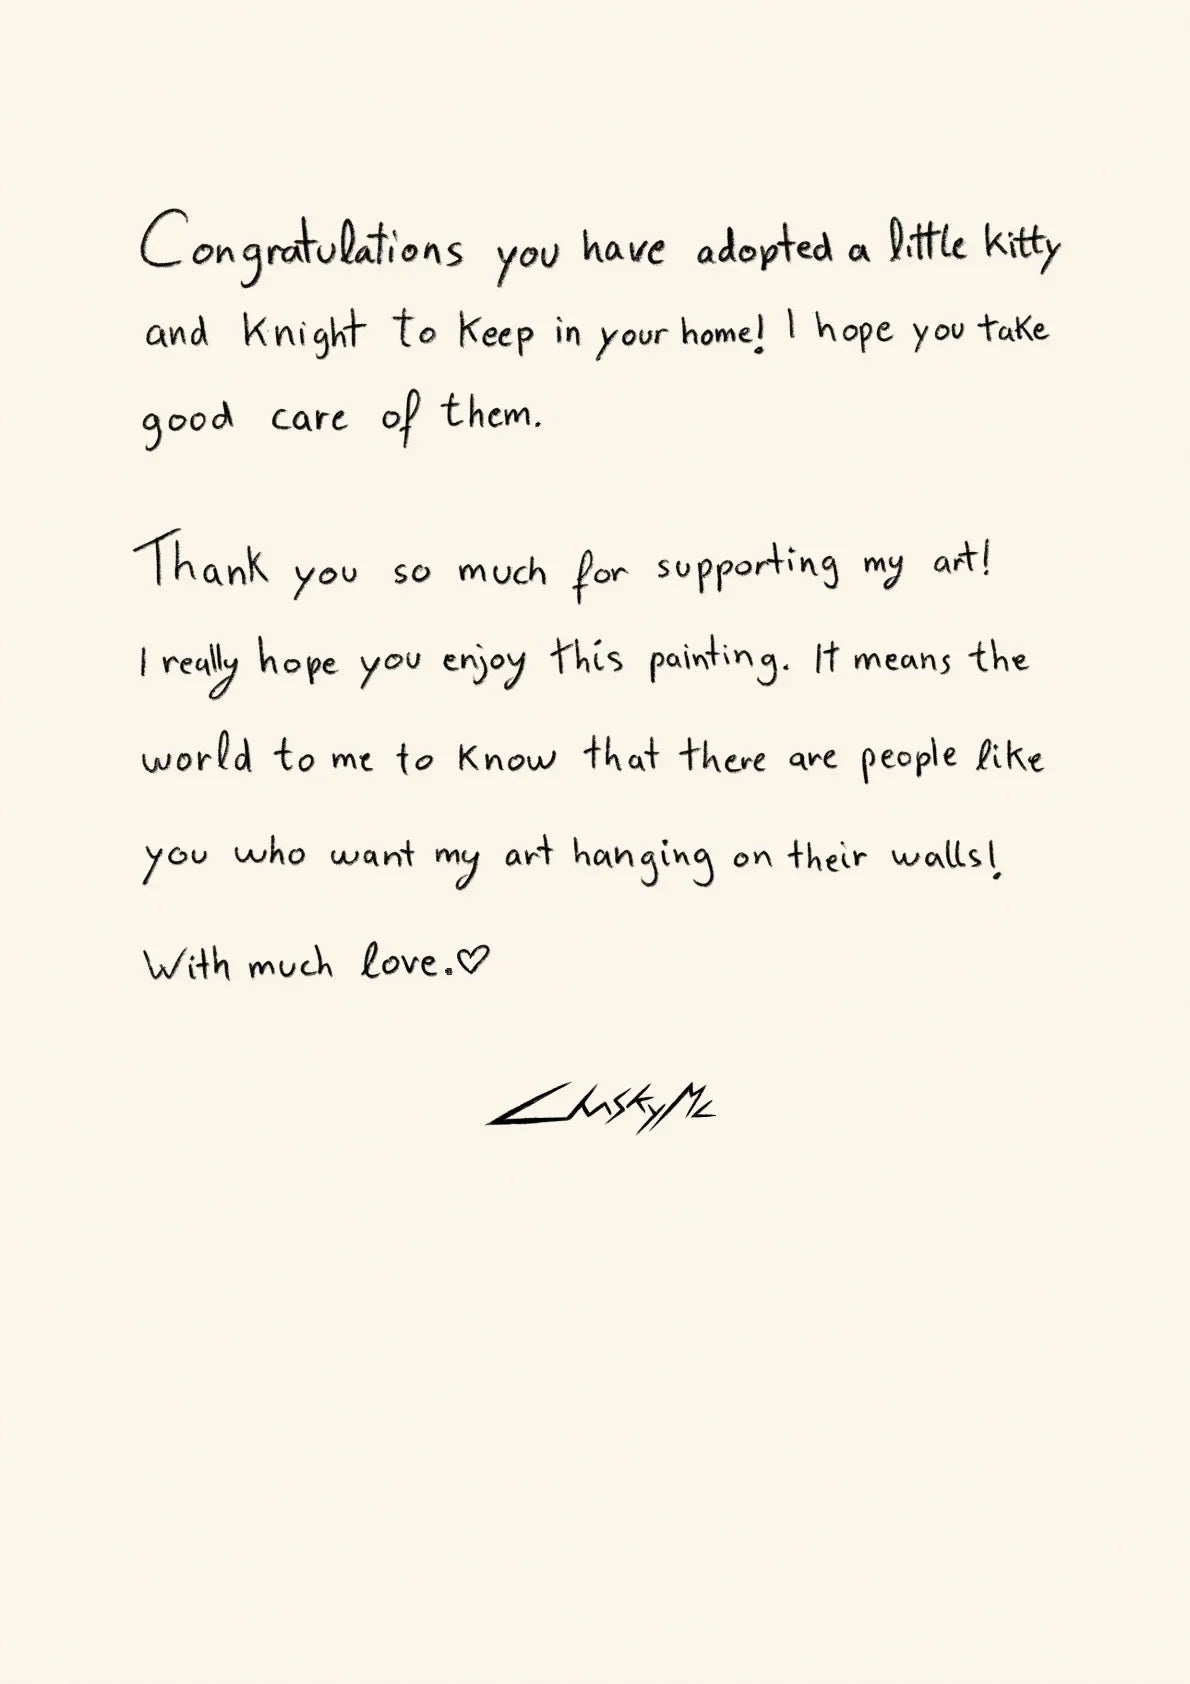 Congratulations you have adopted a little kitty
and knight to keep in your home! I hope you take
good care of them.
Thank you so much for supporting my art!
I really hope you enjoy this painting. It means the
world to me to know that there are people like
you who want my art hanging on their walls!
With much love.♡